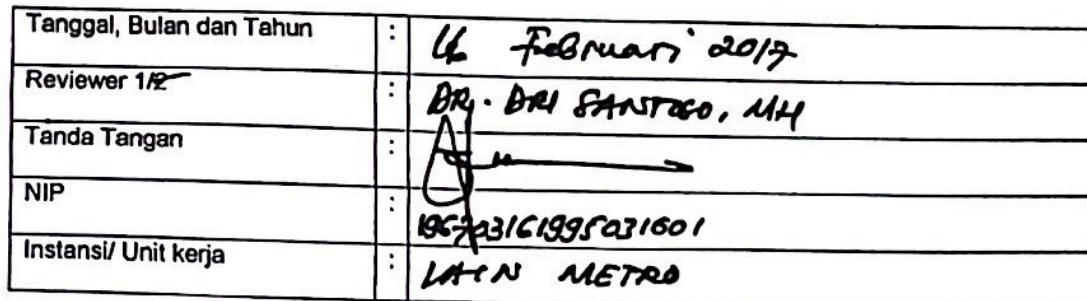 Tanggal, Bulan dan Tahun : 16 Februari 2017
Reviewer 1/2 : DR. DRI SANTOSO, MH
Tanda Tangan :
NIP : 196703161995031001
Instansi/ Unit kerja : IAIN METRO